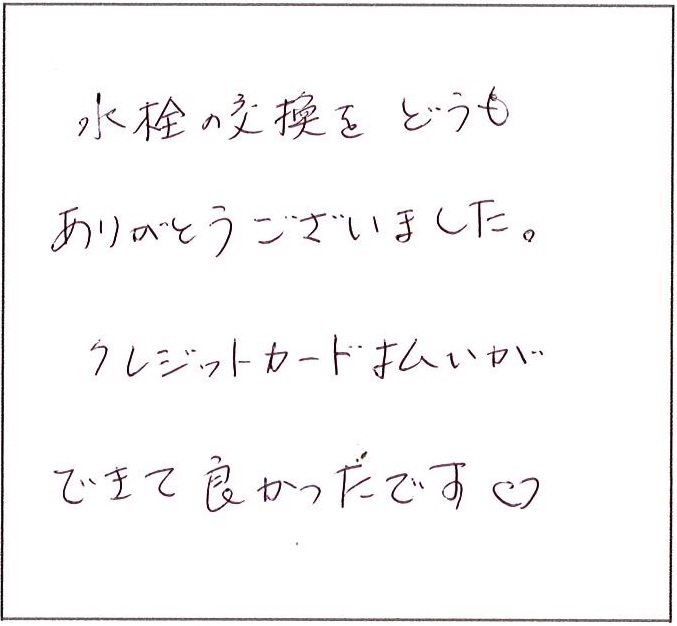 水栓の交換を どうも
ありがとうございました。
クレジットカード払いが
できて良かっだです♡